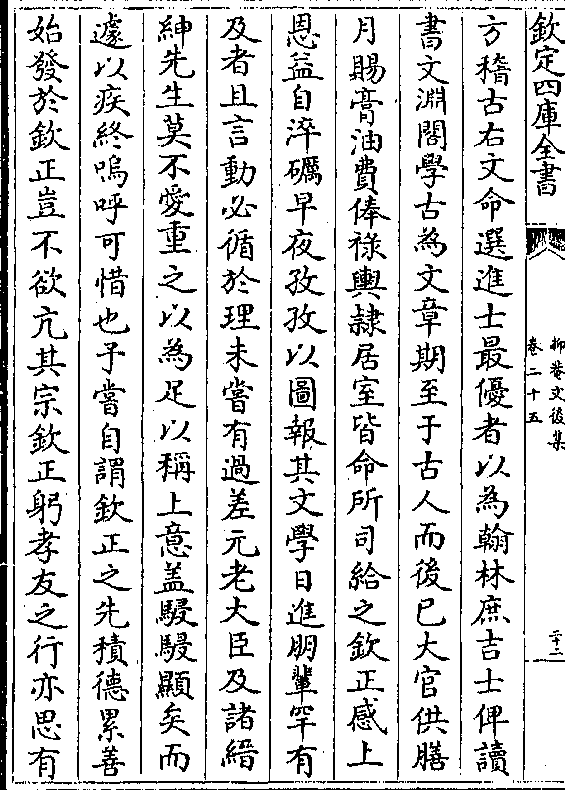 欽定四庫全書
抑菴文後集
卷二十五
三十二
方稽古右文命選進士最優者以為翰林庶吉士俾讀
書文淵閣學古為文章期至于古人而後已大官供膳
月賜膏油費俸祿輿隸居室皆命所司給之欽正感上
恩益自淬礪早夜孜孜以圖報其文學日進朋輩罕有
及者且言動必循於理未嘗有過差元老大臣及諸縉
紳先生莫不愛重之以為足以稱上意盖駸駸顯矣而
遽以疾終嗚呼可惜也予嘗自謂欽正之先積德累善
始發於欽正豈不欲亢其宗欽正躬孝友之行亦思有